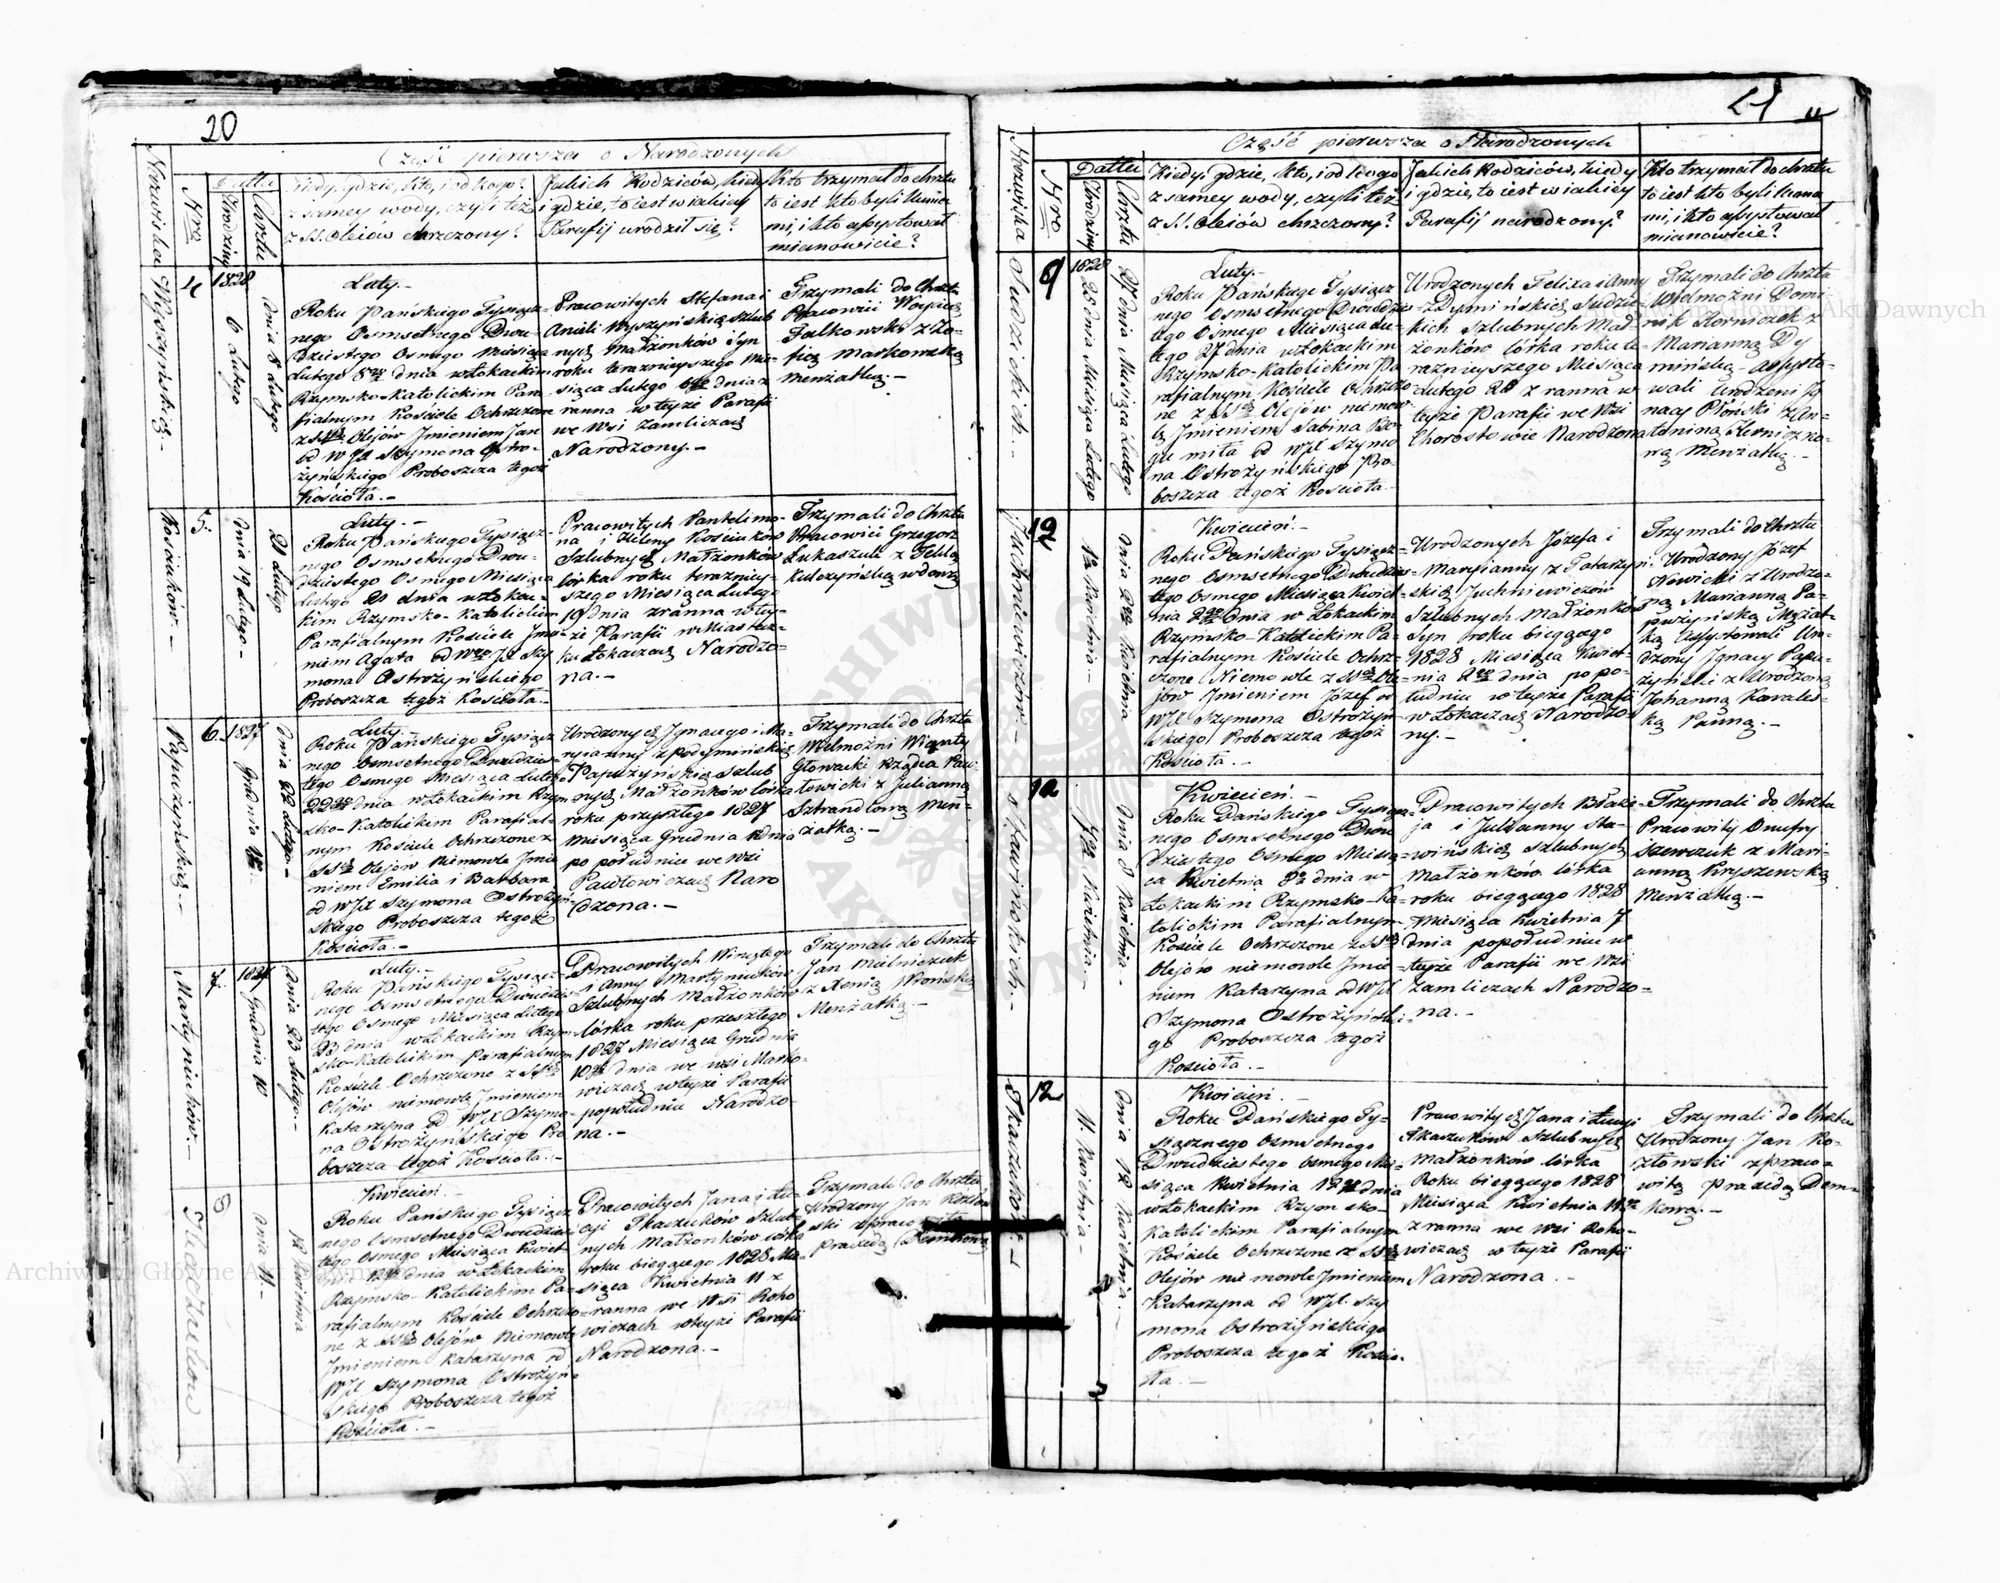 20
Część pierwsza o Narodzonych
Nazwiska
Nro
Datta
Urodziny
Chrztu
Kiedy, gdzie, kto, i od kogo?
z samey wody, czyli też
z SS. Olejów chrzczony?
Jakich Rodziców, kiedy
i gdzie, to iest w iakiey
Parafij urodził się?
Kto trzymał do chrztu
to iest kto byli kumo-
mi, i kto assystował
mianowicie?
Wyszyńskich.-
4
1828
6 Lutego
Dnia 8 Lutego
Luty.-
Roku Pańskiego Tysiącz-
nego Osmsetnego Dwu-
dziestego Osmego Miesiąca
Lutego 8go dnia w Łokackim
Rzymsko-Katolickim Para-
fialnym Kościele Ochrzczone
z SSch Olejów Jmieniem Jan
od WJX Szymona Ostro-
żyńskiego Proboszcza tegoż
Kościoła.-
Pracowitych Stefana i
Anieli Wyszyńskich Szlub
nych Małżonków Syn
roku teraznieyszego Mie-
siąca Lutego 6go dnia z
ranna w teyże Parafii
we Wsi Zamliczach
Narodzony.-
Trzymali do Chrztu
Pracowici Woyciech
Falkowski z Zo-
fią Markowską
Menżatką.-
Kościuków.-
5.
Dnia 19 Lutego.-
21 Lutego
Luty.-
Roku Pańskiego Tysiącz-
nego Osmsetnego Dwu-
dziestego Osmego Miesiąca
Lutego 21 dnia w Łokac-
kim Rzymsko-Katolickim
Parafialnym Kościele Jmie-
niem Agata od WJX Szy
mona Ostrożyńskiego
Proboszcza tegoż Kościoła.-
Pracowitych Pantelimo-
na i Heleny Kościuków
Szlubnych Małżonków
Córka roku terazniey-
szego Miesiąca Lutego
19 Dnia z ranna w tey-
że Parafii w Miastecz-
ku Łokaczach Narodzo-
na.-
Trzymali do Chrztu
Pracowici Grzegorz
Łukaszuk z Teklą
Kulczyńską wdową
Papużyńskich.-
6.
1827
Grudnia
Dnia 22 Lutego.-
Luty.-
Roku Pańskiego Tysiącz
nego Osmsetnego Dwudzies-
tego Osmego Miesiąca Lutego
22go dnia w Łokackim Rzym
sko-Katolickim Parafial-
nym Kościele Ochrzczone z
SSch Olejów Niemowle Jmie
niem Emilia i Barbara
od WJX Szymona Ostrożyń-
skiego Proboszcza tegoż
Kościoła.-
Urodzonych Jgnacego i Ma-
ryanny z Podymińskich
Papużyńskich Szlub
nych Małżonków Córka
roku przeszłego 1827
Miesiąca Grudnia dnia
po południu we Wsi
Pawłowiczach Naro
dzona.-
Trzymali do Chrztu
Wielmożni
Głowacki Rządca Paw
łowicki z Julianną
Sztrandlową Men-
żatką.-
Martyniuków.-
7.
1827
Grudnia 10
Dnia 23 Lutego.-
Luty.-
Roku Pańskiego Tysiącz-
nego Osmsetnego Dwudzies-
tego Osmego Miesiąca Lutego
23 dnia w Łokackim Rzym
sko-Katolickim Parafialnym
Kościele Ochrzczone z SSch
Olejów niemowle Jmieniem
Katarzyna od WJX Szymo-
na Ostrożyńskiego Pro
boszcza tegoż Kościoła.-
Pracowitych Wincętego
i Anny Martyniuków
Szlubnych Małżonków
Córka roku przeszłego
1827 Miesiąca Grudnia
10go dnia we wsi Marko-
wiczach w teyże Parafii
popołudniu Narodzo-
na.-
Trzymali do Chrztu
Jan Mielniczek
z Xenią Wrońską
Menżatką.-
Tkaczuków
8
Dnia 11.-
12 Kwietnia
Kwiecień.-
Roku Pańskiego Tysiącz
nego Osmsetnego Dwudzies-
tego Osmego Miesiąca Kwiet-
dnia w Łokackim
Rzymsko-Katolickim Pa-
rafialnym Kościele Ochrzczo-
ne z SSch Olejów Niemowle
Jmieniem Katarzyna od
WJX Szymona Ostrożyń-
skiego Proboszcza tegoż
Kościoła.-
Pracowitych Jana i Łu-
cyi Tkaczuków Szlub-
nych Małżonków Córka
roku biegącego 1828 Mie-
siąca Kwietnia 11 z
ranna we Wsi Roho
wiczach w teyże Parafii
Narodzona.-
Trzymali do Chrztu
Urodzony Jan Kozłow
ski z pracowitą
Praxedą Demkową
21
Część pierwsza o Narodzonych
Nazwiska
Nro
Datta
Urodziny
Chrztu
Kiedy, gdzie, kto, i od kogo
z samey wody, czyli też
z SS. Olejów chrzczony?
Jakich Rodziców, kiedy
i gdzie, to iest w iakiey
Parafij narodzony?
Kto trzymał do chrztu
to iest kto byli kumo-
mi, i kto assystował
mianowicie?
Sudzickich.-
9
1828
28 dnia Miesiąca Lutego
27 dnia Miesiąca Lutego
Luty.-
Roku Pańskiego Tysiącz
nego Osmsetnego Dwudzies
tego Osmego Miesiąca Lu-
tego 27 dnia w Łokackim
Rzymsko-Katolickim Pa
rafialnym Kościele Ochrzczo
ne z SSch Olejów niemow
lę Jmieniem Sabina Bo-
gu miła od WJX Szymo
na Ostrożyńskiego Pro
boszcza tegoż Kościoła.
Urodzonych Felixa i Anny
z Dymińskich Sudzic-
kich Szlubnych Mał-
żonków Córka roku te-
raznieyszego Miesiąca
Lutego 28 z ranna w
teyże Parafii we Wsi
Chorostowie Narodzona
Trzymali do Chrztu
Wielmożni Domi
nik Horniczek z
Marianną Dy
mińską - assysto-
wali Urodzeni Jg
nacy Płoński z An-
toniną Hernicz ko-
wą Menżatką.-
Juchniewiczów.-
Dnia 2go Kwietnia
Kwiecień.-
Roku Pańskiego Tysiącz-
nego Osmsetnego Dwudzies-
tego Osmego Miesiąca Kwiet-
nia 2go Dnia w Łokackim
Rzymsko-Katolickim Pa-
rafialnym Kościele Ochrz-
czone Niemowle z SSch Ole-
jów Jmieniem Józef
WJX Szymona Ostrożyń-
skiego Proboszcza tegoż
Kościoła.-
Urodzonych Józefa i
Maryianny z
Juchniewiczów
Szlubnych Małżonków
Syn roku biegącego
1828 Miesiąca Kwiet-
nia 2go dnia popo-
łudniu w teyże Parafii
w Łokaczach Narodzo-
ny.-
Trzymali do Chrztu
Urodzony Józef
Nowicki z Urodzo-
ną Marianną Pa-
pużyńską Mężat-
ką Assystowali Uro-
dzony Jgnacy Papu-
żyński z Urodzoną
Johanną Kowales-
ką Panną.-
Sławińskich.-
7go Kwietnia.-
Dnia 8 Kwietnia.
Kwiecień.-
Roku Pańskiego Tysiącz-
nego Osmsetnego Dwu
dziestego Osmego Miesią-
ca Kwietnia 8go dnia w
Łokackim Rzymsko-Ka-
tolickim Parafialnym
Kościele Ochrzczone z SSch
Olejów niemowle Jmie-
niem Katarzyna od WJX
Szymona Ostrożyński-
go Proboszcza tegoż
Kościoła.-
Pracowitych Błaże-
ja i Julianny Sła-
wińskich Szlubnych
Małżonków Córka
roku biegącego 1828
Miesiąca Kwietnia 7
dnia popołudniu w
teyże Parafii we Wsi
Zamliczach Narodzo-
na.-
Trzymali do Chrztu
Pracowity Onufry
Szewczuk z Mari-
anną Kryszewską
Menżatką.-
Tkaczuków.-
12
11 Kwietnia.-
Dnia 12 Kwietnia.-
Kwiecień.-
Roku Pańskiego Ty-
siącznego Osmsetnego
Dwudziestego Osmego Mie-
siąca Kwietnia 12go dnia
w Łokackim Rzymsko-
Katolickim Parafialnym
Kościele Ochrzczone z SSch
Olejów niemowle Jmieniem
Katarzyna od WJX. Szy
mona Ostrożyńskiego
Proboszcza tegoż Kościo-
ła.-
Pracowitych Jana i Łucyi
Tkaczuków Szlubnych
Małżonków Córka
Roku biegącego 1828
Miesiąca Kwietnia 11go
z ranna we Wsi Roho-
wiczach w teyże Parafii
Narodzona.-
Trzymali do Chrztu
Urodzony Jan Ko-
złowski z praco-
witą Praxedą Dem-
kową.-
Archiwum Główne Akt Dawnych
Archiwum Główne Akt Dawnych